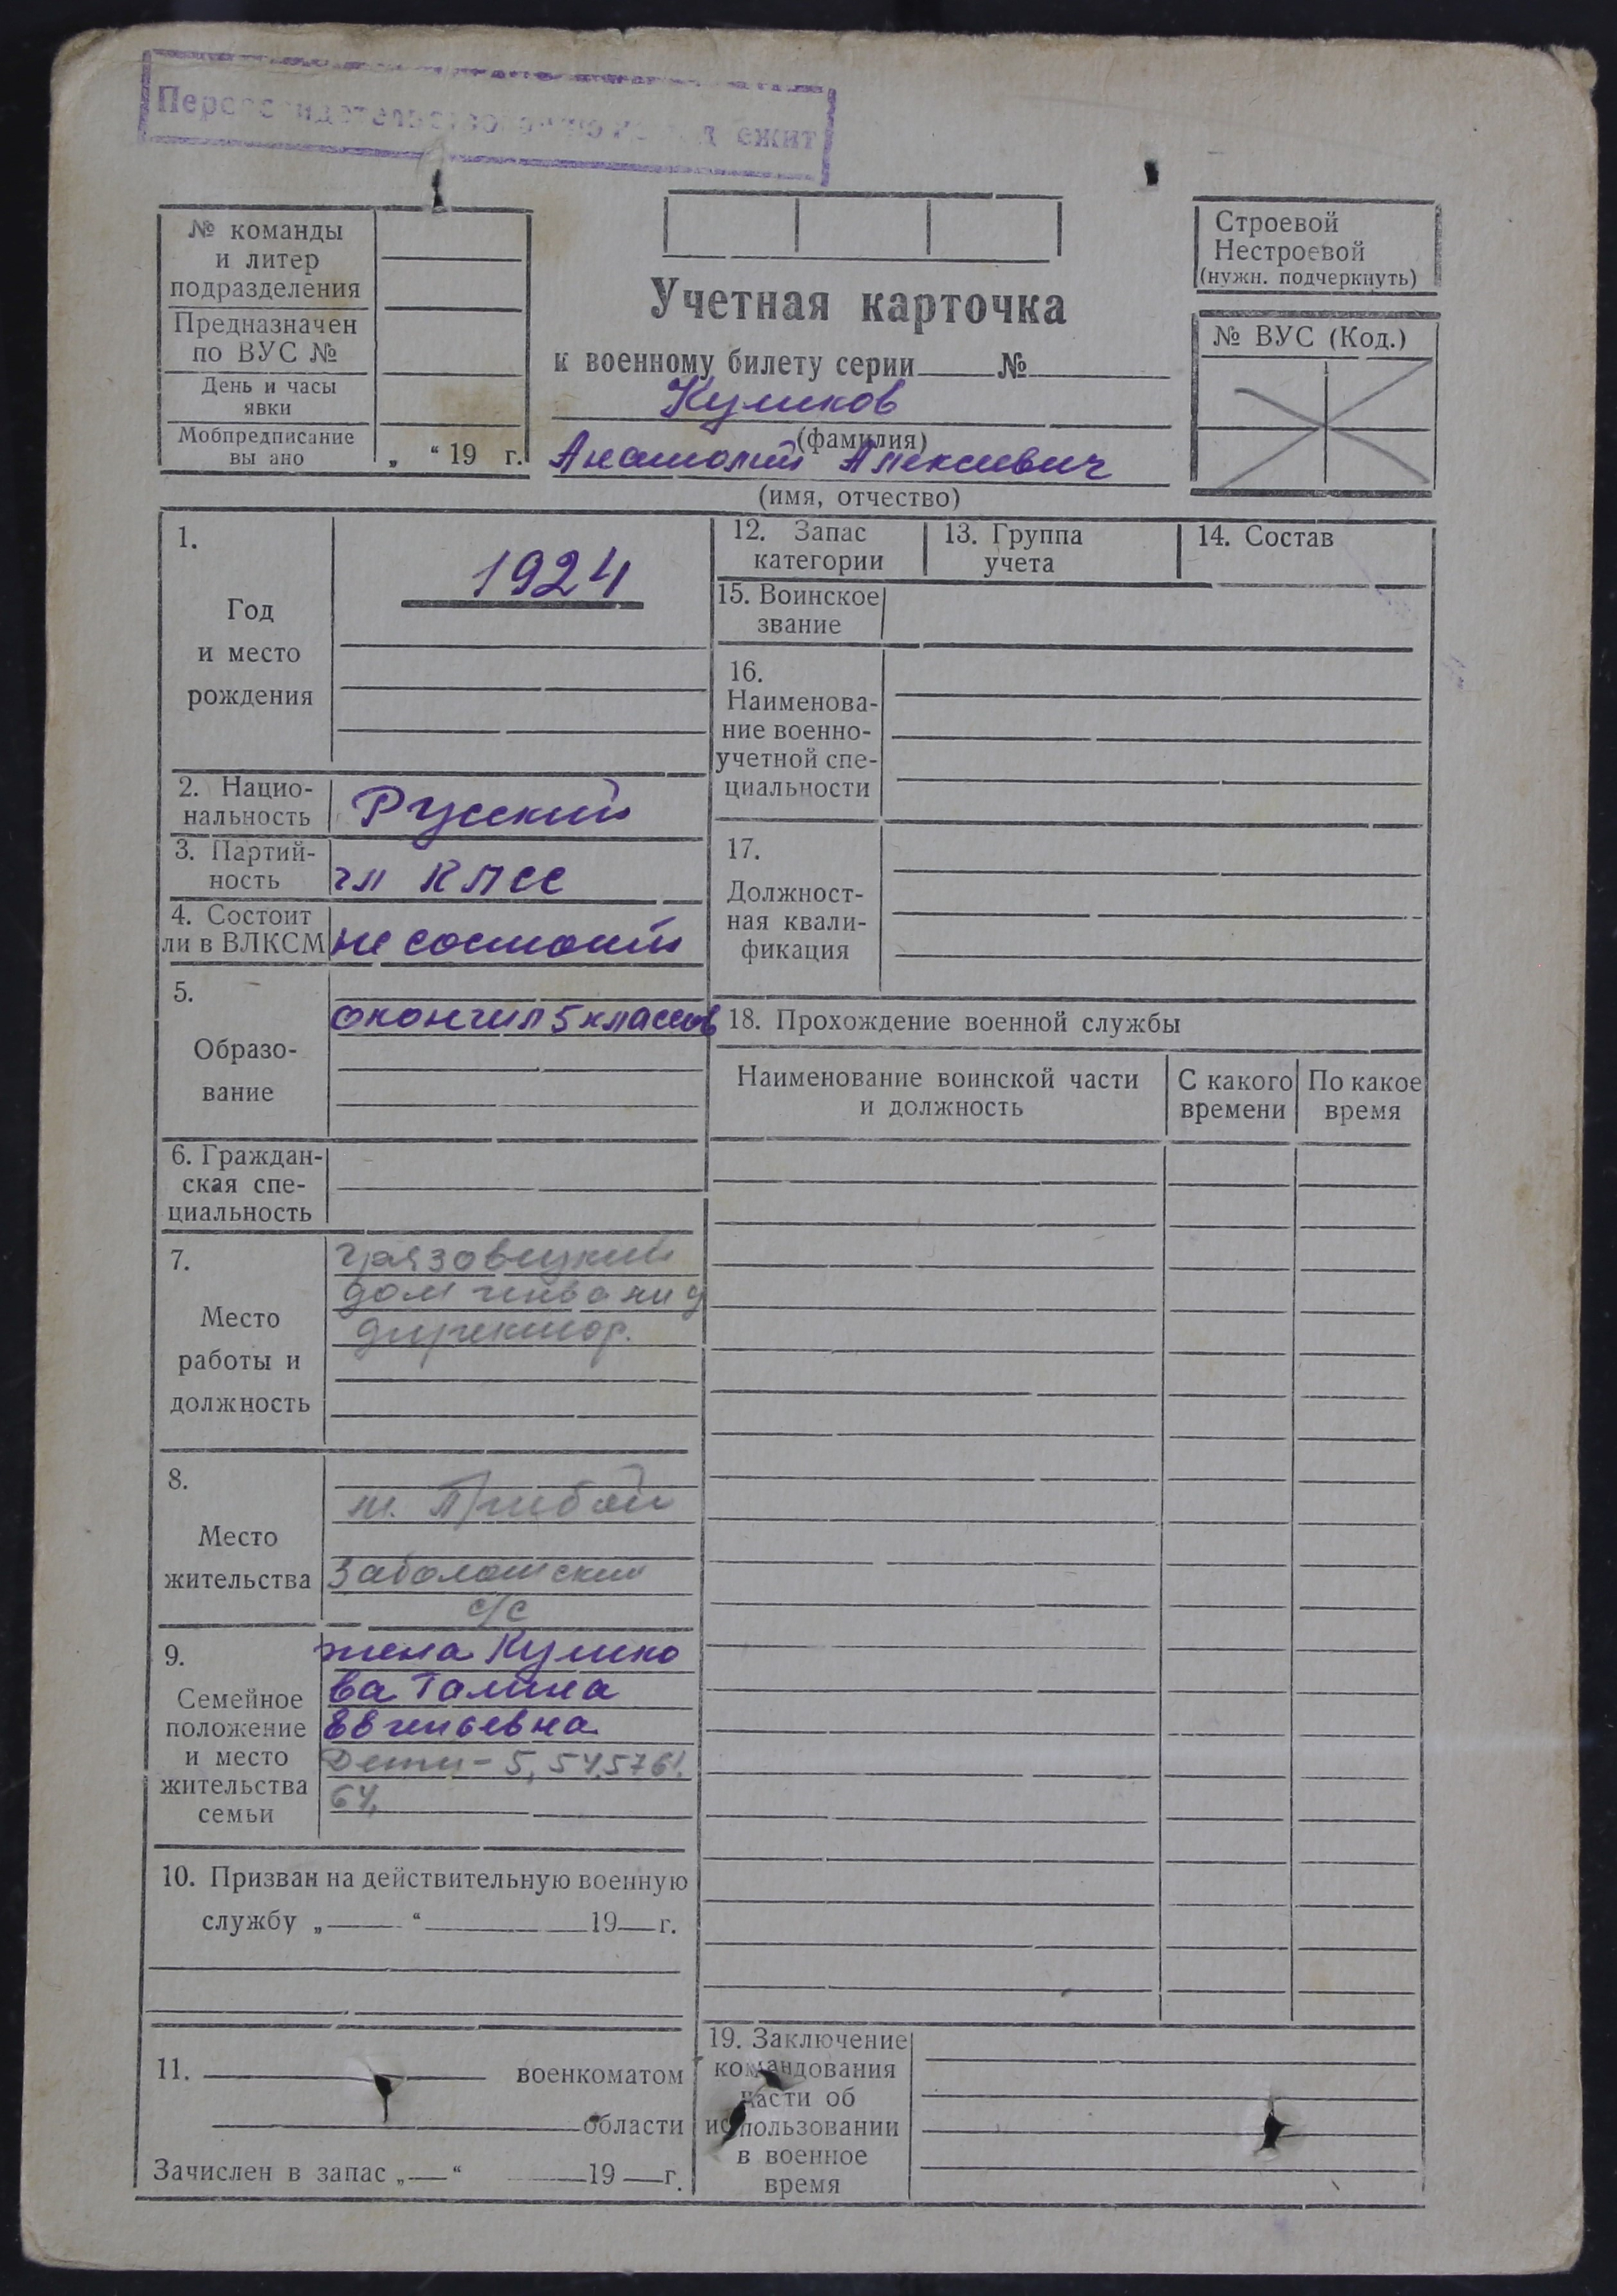 Переосвидетельствованию не подлежит
№ команды
и литер
подразделения
Предназначен
по ВУС №
День и часы
явки
Мобпредписание
вы ано
„ “ 19 г.
Учетная карточка
к военному билету серии № 
Куликов
(фамилия)
Анатолий Алексеевич
(имя, отчество)
Строевой
Нестроевой
(нужн. подчеркнуть)
№ ВУС (Код.)
1.
Год
и место
рождения
1924
2. Нацио-
нальность
Русский
3. Партий-
ность
чл КПСС
4. Состоит
ли в ВЛКСМ
не состоит
5.
Образо-
вание
окончил 5 классов
6. Граждан-
ская спе-
циальность
7.
Место
работы и
должность
Грязовецкий
дом инвалид
директор.
8.
Место
жительства
Заболотский
с/с
9.
Семейное
положение
и место
жительства
семьи
жена Кулико
ва Галина
Евгеньевна
Дети - 5, 54, 57 61.
64,
10. Призван на действительную военную
службу „ “ 19 г.
11. военкоматом
области
Зачислен в запас „ “ 19 г.
12. Запас
категории
13. Группа
учета
14. Состав
15. Воинское
звание
16.
Наименова-
ние военно-
учетной спе-
циальности
17.
Должност-
ная квали-
фикация
18. Прохождение военной службы
Наименование воинской части
и должность
С какого
времени
По какое
время
19. Заключение
командования
части об
использовании
в военное
время